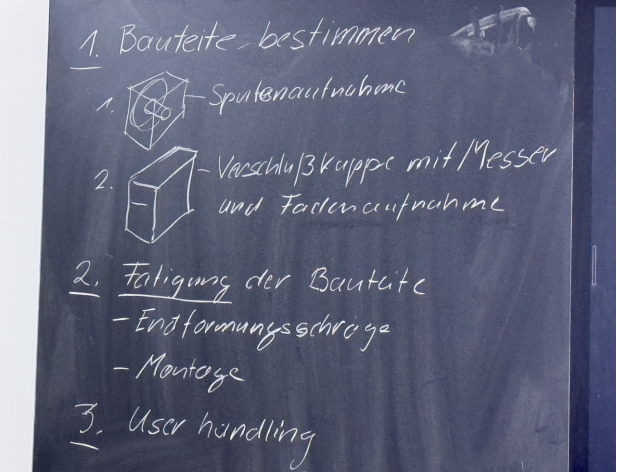 1. Bauteile bestimmen
1. Spulenaufnahme
2. Verschlußkappe mit Messer
und Fadenaufnahme
2. Fätigung der Bauteile
- Endformungsschräge
- Montage
3. User handling